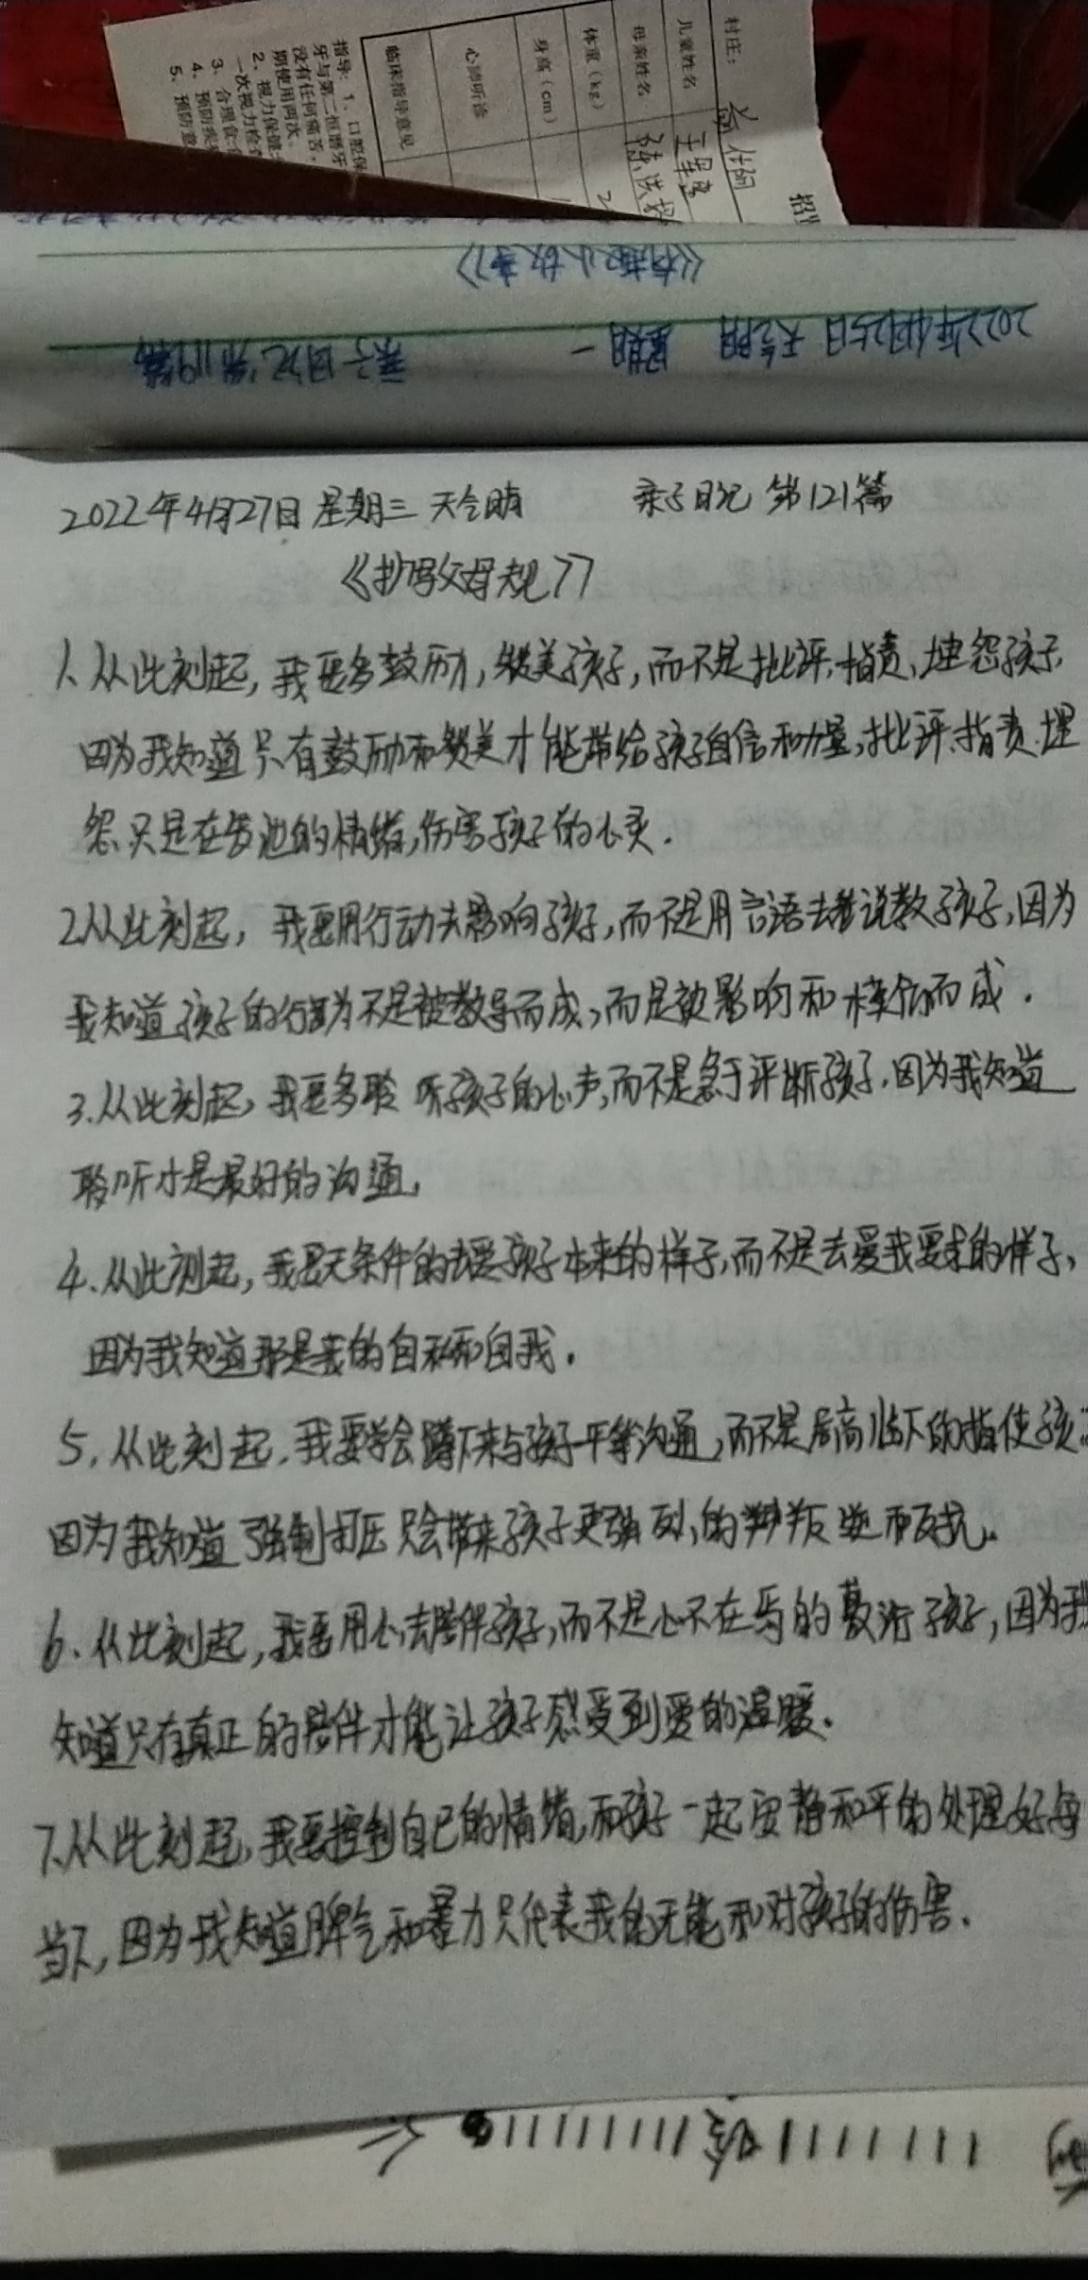 村庄：
儿童姓名
母亲姓名
体重（kg）
身高（cm）
心肺听诊
临床指导意见
指导：1、口腔保
牙与第二恒磨牙
没有任何痛苦，
期使用两次。
2、视力保健：
一次视力检查
3、合理食
4、预防疾
5、预防意
《有趣小故事》
2022年4月25日 天气晴 星期一 亲子日记 第119篇
2022年4月27日 星期三 天气晴 亲子日记 第121篇
《抄写父母规》
1、从此刻起，我要多鼓励，赞美孩子，而不是批评、指责、埋怨孩子，
因为我知道只有鼓励和赞美才能带给孩子自信和力量，批评、指责、埋
怨只是在发泄的情绪，伤害孩子的心灵。
2从此刻起，我要用行动去影响孩子，而不是用言语去说教孩子，因为
我知道孩子的行为不是被教导而成，而是被影响和模仿而成。
3.从此刻起，我要多聆听孩子的心声，而不是急于评断孩子，因为我知道
聆听才是最好的沟通，
4、从此刻起，我要无条件的去爱孩子本来的样子，而不是去爱我要求的样子，
因为我知道那是我的自私和自我。
5，从此刻起，我要学会蹲下来与孩子平等沟通，而不是居高临下的指使孩
因为我知道强制打压只会带来孩子更强烈的叛逆和反抗。
6、从此刻起，我要用心去陪伴孩子，而不是心不在焉的敷衍孩子，因为我
知道只有真正的陪伴才能让孩子感受到爱的温暖。
7、从此刻起，我要控制自己的情绪，和孩子一起安静和平的处理好每
当下，因为我知道脾气和暴力只代表我的无能和对孩子的伤害。